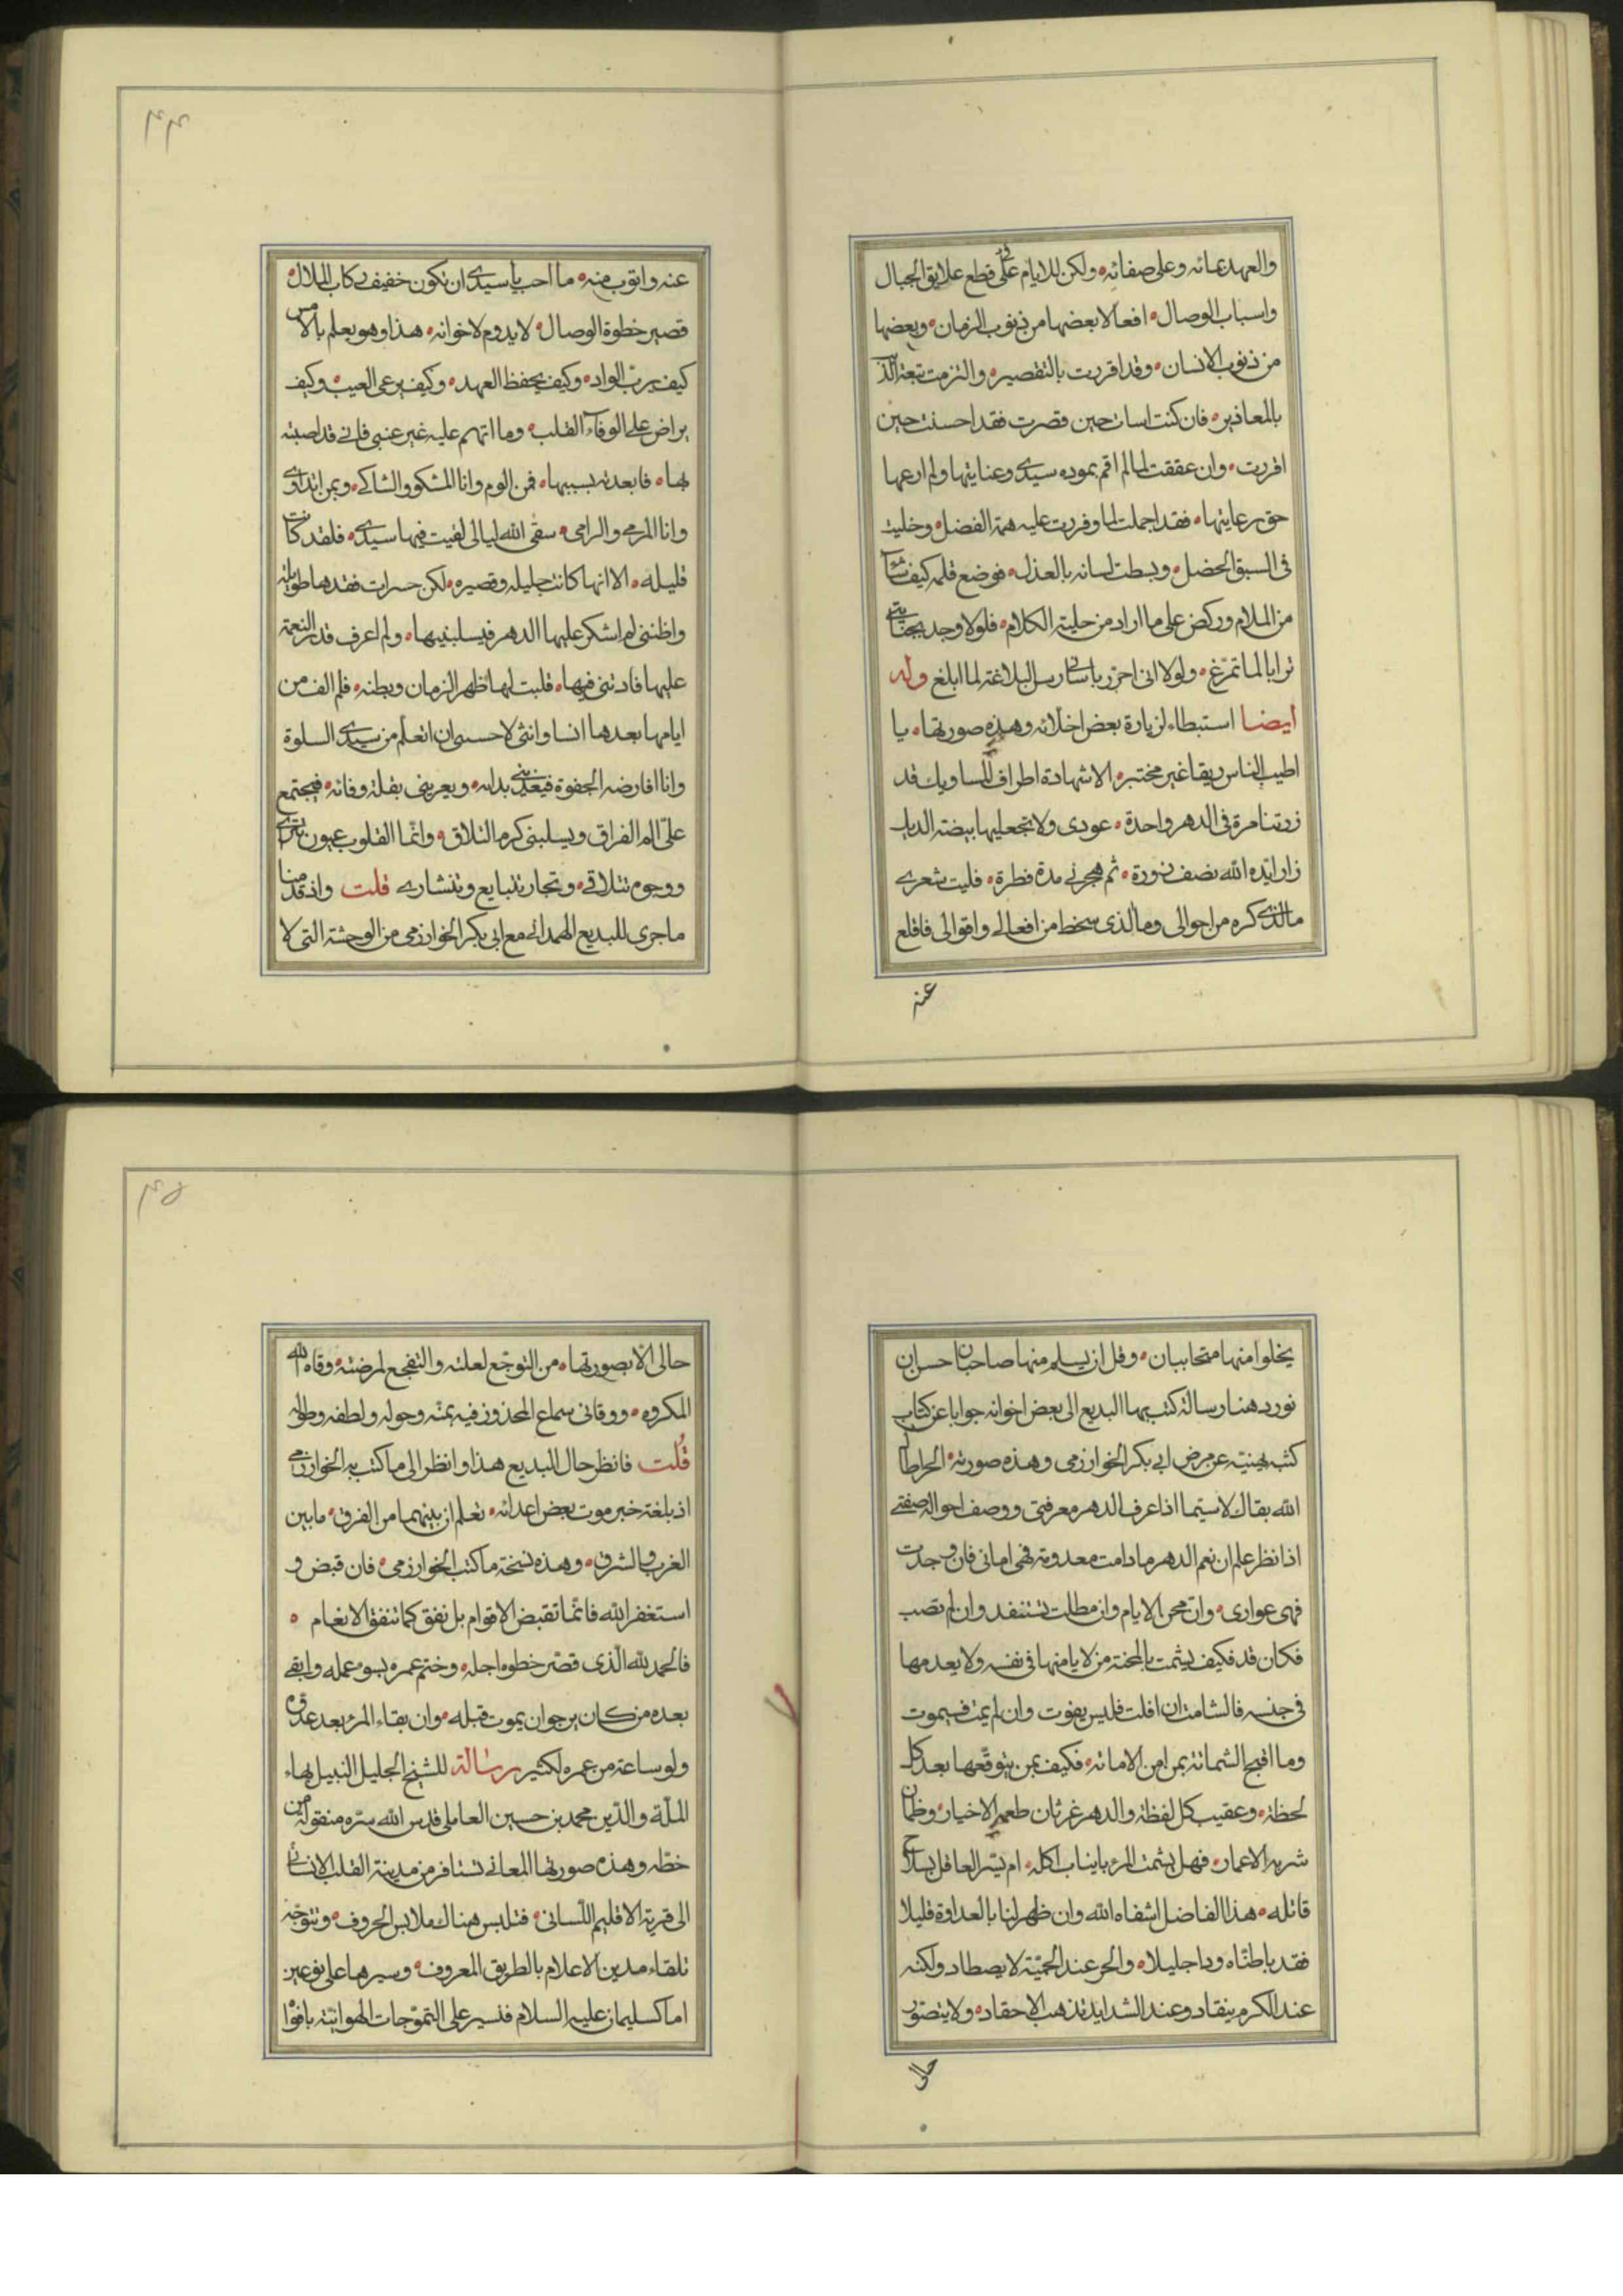 والعهد بمائه وعلى صفائه ولكن للايام على قطع علايق الحبال
واسباب الوصال افعالا بعضها من ذنوب الزمان وبعضها
من ذنوب الانسان وقد اقررت بالتقصير والتزمت تبعة
بالمعاذير فان كنت اسات حين قصرت فقد احسنت حين
اقررت وان عققت لما لم اقم بموده سيدي وعنايتها ولم ارعها
حق رعايتها فقد اجملت لما وفررت عليه همة الفضل وخليت
فى السبق الخصل وبسطت لسانه بالعذل فوضع قلمه كيف شآ
من الملام وركض على ما اراد من حلية الكلام فلولا وجد بجنايتي
ترابا لما تمرّغ ولولا انى احرر باساتي رسل البلاغة لما ابلغ وله
ايضا استبطاء لزيارة بعض اخلائه وهذه صورتها يا
اطيب الناس ريقا غير مختبر الا شهادة اطراف المساويك قد
زرتنا مرة فى الدهر واحدة عودى ولا تجعليها بيضة الديك
زار ايّده الله نصف زورة ثم هجرني مدة فطرة فليت شعري
ما الذي كره من احوالى وما الذى سخط من افعالي واقوالى فاقلع
عنه
۴۴
عنه واتوب منه ما احب يا سيدي ان تكون خفيف ركاب الملال
قصير خطوة الوصال لا يدوم لاخوانه هذا وهو يعلم بالامس
كيف يربّ الواد وكيف يحفظ العهد وكيف يرعى العيب وكيف
يراض على الوفآء القلب وما اتهم عليه غير عنبي فاني قد اصبته
بها فابعدته بسببها فمن الوم وانا المشكو والشاكي وبمن اتداوى
وانا المرمي والرامى سقى الله ليالى لقيت فيها سيدي فلقد كانت
قليله الا انها كانت جليله وقصيره لكن حسرات فقدها طويلة
واظننى لم اشكر عليها الدهر فيسلبنيها ولم اعرف قدر النعمة
عليها فادتنى فيها قلبت لها ظهر الزمان وبطنه فلم الف من
ايامها بعدها انسا وانثى لاحسبى ان اتعلم من سيدي السلوة
وانا افارضه الجفوة فيعذبني بداله ويعرينى بقلة وفائه فيجتمع
علىّ الم الفراق ويسلبنى كرم التلاق وانّما القلوب عيون تترى
ووجوه تتلاقى وتجار تتبايع وتتشارى قلت واذ قدمنا
ما جرى للبديع الهمداني مع ابى بكر الخوارزمى من الوحشة التى لا
يخلوا منها متحاببان وقل ان يسلم منها صاحبان حسان
نورد هنا رسالة كتب بها البديع الى بعض اخوانه جوابا عن كتاب
كتبه يهنيه عن مرض ابي بكر الخوارزمى وهذه صورته الحر اطال
الله بقاك لا سيّما اذا عرف الدهر معرفتى ووصف احواله صفتي
اذا نظر علم ان نعم الدهر ما دامت معدومة فهى امانى فان وجدت
فهى عوارى وان محن الايام وان مطلت تستنفد وان لم تصب
فكان قد فكيف يشمت بالمحنة من لا يامنها فى نفسه ولا يعدمها
فى جنسه فالشامت ان افلت فليس يفوت وان لم يمت فسيموت
وما اقبح الشماتة بمن امن الاماتة فكيف بمن يتوقّعها بعد كل
لحظة وعقيب كل لفظة والدهر غرثان طعمه الاخيار وظمان
شربه الاعمار فهل يشمت المرء باينات اكله ام يسّر العاقل بسلاح
قاتله هذا الفاضل اشفاه الله وان ظهر لنا بالعداوة قليلا
فقد باطنّاه ودا جليلا والحر عند الحميّة لا يصطاد ولكنه
عند الكرم ينقاد وعند الشدايد تذهب الاحقاد ولا يتصوّر
حالى
۴۵
حالى الّا بصورتها من التوجّع لعلته والتفجع لمرضته وقاه الله
المكروه ووقانى سماع المحذور فيه بمنّه وحوله ولطفه وطوله
قُلت فانظر حال البديع هذا وانظر الى ما كتب به الخوارزمي
اذ بلغته خبر موت بعض اعدائه تعلم ان بينهما من الفرق ما بين
الغرب والشرق وهذه نسخة ما كتب الخوارزمى فان قبض و
استغفر الله فانّما تقبض الاقوام بل نفق كما تنفق الانعام
فالحمد لله الّذى قصّر خطوه اجله وختم عمره بسوء عمله وابقى
بعده من كان يرجوان يموت قبله وان بقاء المرء بعد عدوّه
ولو ساعة من عمره لكثير رسالة للشيخ الجليل النبيل بهاء
الملّة والدّين محمد بن حسين العاملى قدس الله سرّه منقولة من
خطّه وهذه صورتها المعاني تسافر من مدينة القلب الانساني
الى قرية الاقليم اللّسانى فتلبس هناك ملابس الحروف وتتوجّه
تلقاء مدين الاعلام بالطريق المعروف وسيرها على نوعين
اما كسليمان عليه السلام فتسير على التموّجات الهوائيّة بافوا